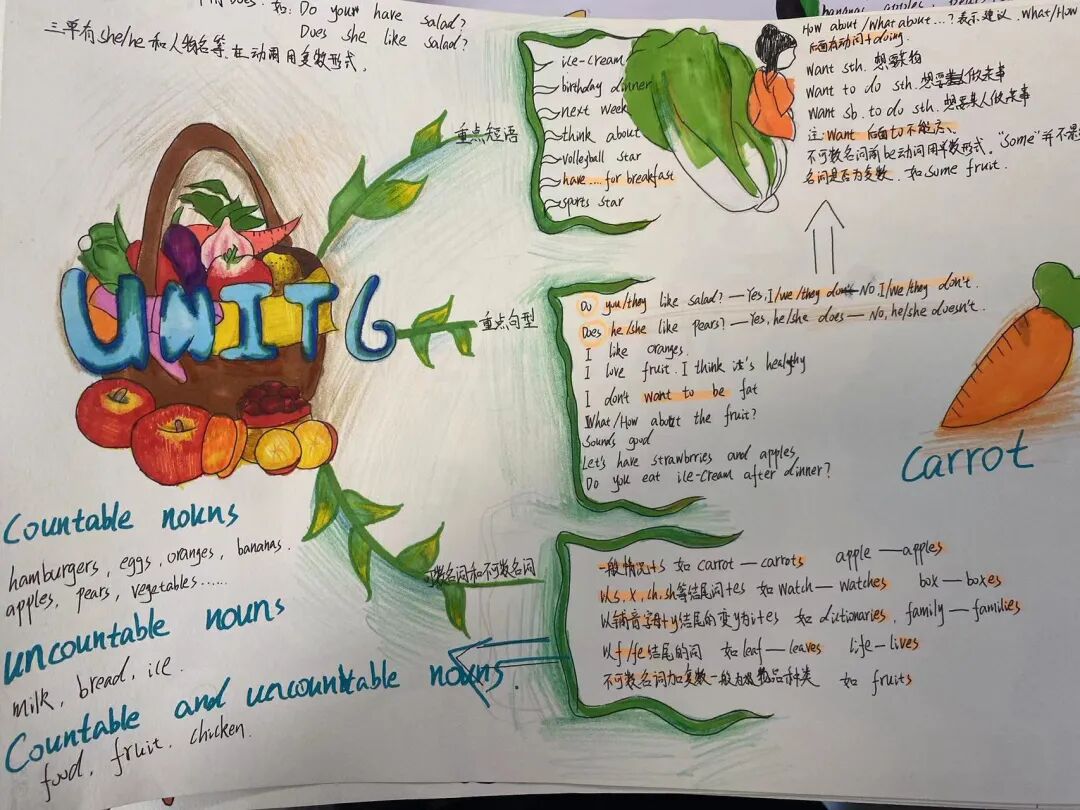 Do your have salad?
Does she like salad?
三单有she/he和人物名等.在动词用复数形式.
bananas, apples,
How about/What about...?表示建议.What/How
后面有动词+doing.
want sth.想要某物
want to do sth.想要做某事
want sb. to do sth.想要某人做某事
注:want 后面to不能
不可数名词前be动词用单数形式."some"并不是
名词是否为复数.如some fruit.
重点短语
ice-cream
birthday dinner
next week
think about
volleyball star
have....for breakfast
sports star
UNIT6
重点句型
Do you/they like salad?—Yes,I/we/they do — NO.I/we/they don't.
Does he/she like pears?—Yes,he/she does— No,he/she doesn't.
I like oranges.
I love fruit. I think it's healthy
I don't want to be fat
What/How about the fruit?
Sounds good
Let's have strawbrries and apples
Do you eat ice-cream after dinner?
carrot
数名词和不可数名词
一般情况+s 如carrot—carrots apple—apples
以s,x,ch,sh等结尾词+es 如watch—watches box—boxes
以辅音字母+y结尾的变y为i+es 如dictionaries, family—families
以f/fe结尾的词 如leaf—leaves life—lives
不可数名词加复数一般为物品种类 如 fruits
Countable nouns
hamburgers, eggs, oranges, bananas.
apples, pears, vegetables......
uncountable nouns
milk, bread, ice.
Countable and uncountable nouns.
food, fruit, chicken.